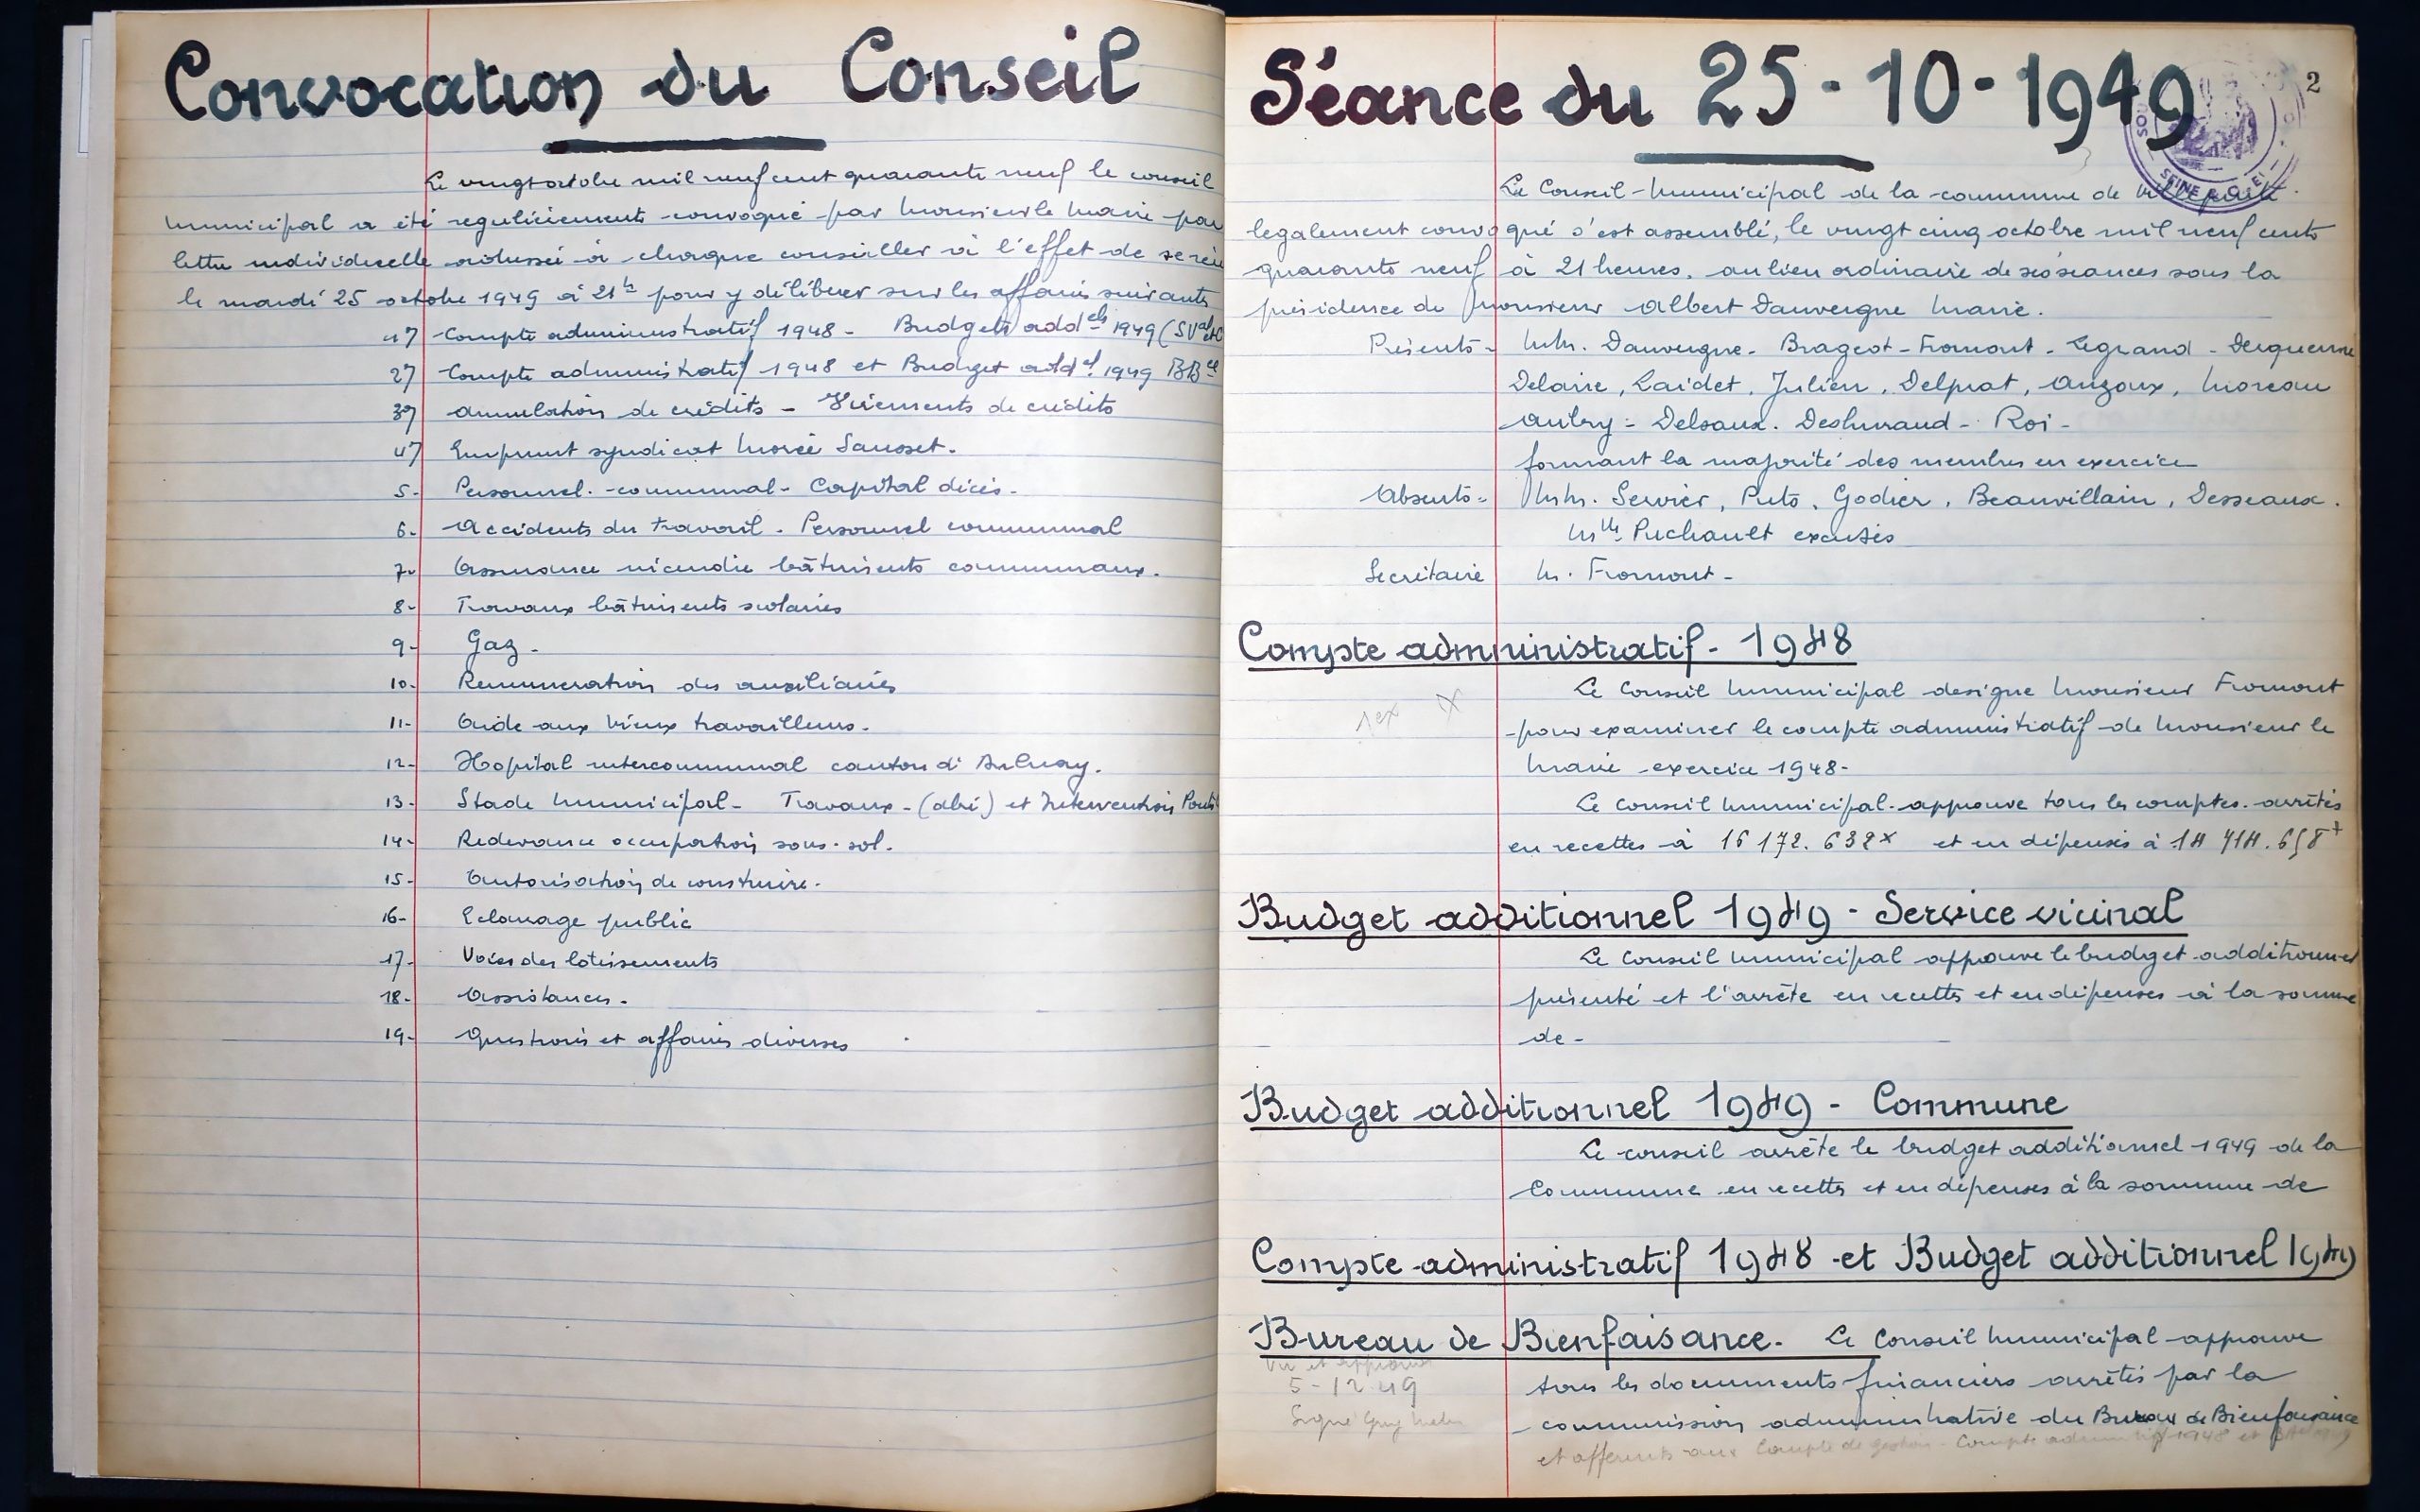 Convocation du Conseil
Le vingt octobre mil neuf cent quarante neuf le conseil
municipal a été regulièrement convoqué par Monsieur le Maire par
lettre individuelle adressée à chaque conseiller à l'effet de se réu
le mardi 25 octobre 1949 à 21h pour y délibérer sur les affaires suivants
1°/ Compte administratif 1948 - Budgets addels 1949 (SVal et C
2°/ Compte administratif 1948 et Budget addel 1949 BBce
3°/ Annulation de crédits - Virements de crédits
4°/ Emprunt syndicat Morée Sausset.
5- Personnel communal - Capital décès.
6- Accidents du travail - Personnel communal
7- Assurance incendie bâtiments communaux.
8- Travaux bâtiments scolaires
9- Gaz -
10- Remuneration des auxiliaires
11- Aide aux Vieux travailleurs.
12- Hopital intercommunal canton d'Aulnay.
13- Stade Municipal - Travaux - (abri) et Intervention
14- Redevance occupation sous-sol.
15- Autorisation de construire.
16- Eclairage public
17- Voies des lotissements
18- Assistances.
19- Questions et affaires diverses
Séance du 25-10-1949
2
SEINE & OISE
Le Conseil Municipal de la commune de Villepinte
legalement convoqué s'est assemblé, le vingt cinq octobre mil neuf cent
quarante neuf à 21 heures, au lieu ordinaire de ses séances sous la
présidence de Monsieur Albert Dauvergne Maire.
Présents - MM. Dauvergne - Brageot - Fromont - Legrand - Derquenne
Delaire, Laidet, Julien, Delprat, Auzoux, Moreau
Autry - Delsaux. Deshuraud - Roi -
formant la majorité des membres en exercice
Absents - MM. Servier, Puto, Godier, Beauvillain, Desseaux.
Mlle Puchault excusés
Secrétaire M. Fromont -
Compte administratif - 1948
Le Conseil Municipal designe Monsieur Fromont
1ex X
pour examiner le compte administratif de Monsieur le
Maire exercice 1948 -
Le Conseil Municipal approuve tous les comptes arrêtés
en recettes à 16 172. 632x et en dépenses à 14 714. 658+
Budget additionnel 1949 - Service vicinal
Le Conseil Municipal approuve le budget additionnel
présenté et l'arrête en recettes et en dépenses à la somme
de -
Budget additionnel 1949 - Commune
Le conseil arrête le budget additionnel 1949 de la
Commune en recettes et en dépenses à la somme de
Compte administratif 1948 et Budget additionnel 1949
Bureau de Bienfaisance. Le Conseil Municipal approuve
Vu et approuvé
5-12-49
tous les documents financiers arrêtés par la
Signé Guy
commission administrative du Bureau de Bienfaisance
et afférents aux Compte de gestion - Compte administratif 1948 et